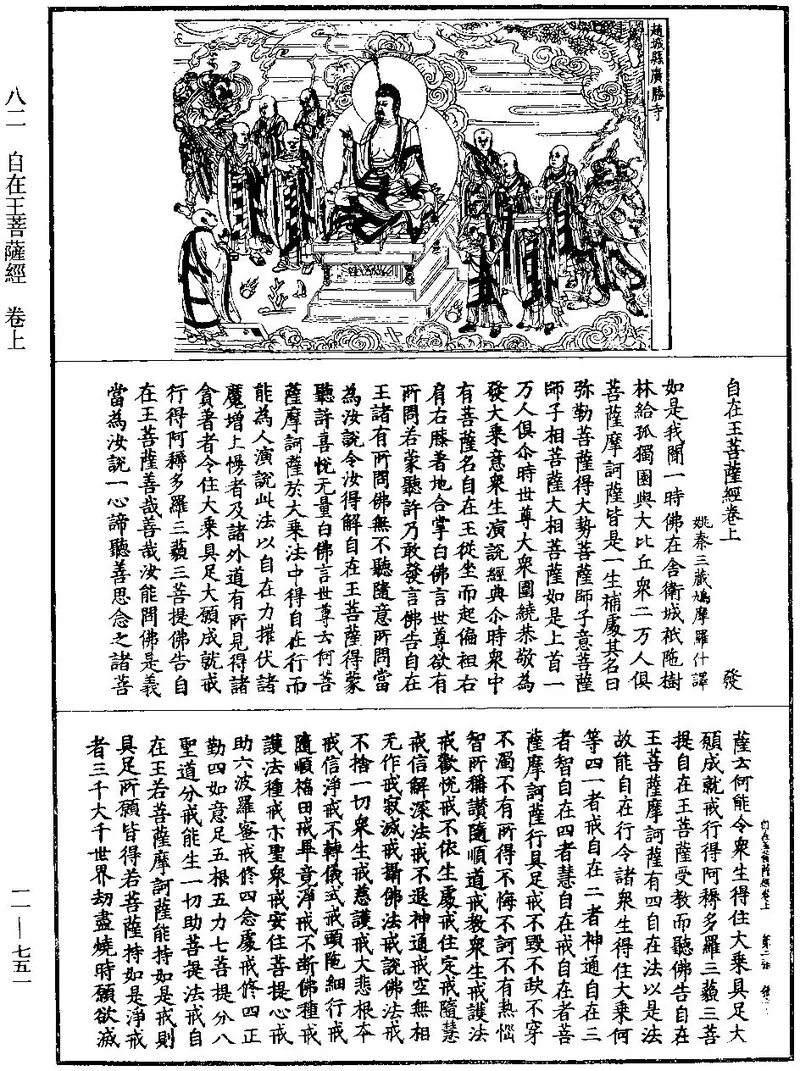 八二 自在王菩薩經 卷上
趙城縣廣勝寺
自在王菩薩經卷上 發
姚秦三藏鳩摩羅什譯
如是我聞一時佛在舍衛城祇陁樹
林給孤獨園與大比丘眾二万人俱
菩薩摩訶薩皆是一生補處其名曰
弥勒菩薩得大勢菩薩師子意菩薩
師子相菩薩大相菩薩如是上首一
万人俱尒時世尊大眾圍繞恭敬為
發大乗意眾生演說經典尒時眾中
有菩薩名自在王從坐而起偏袒右
肩右膝著地合掌白佛言世尊欲有
所問若蒙聽許乃敢發言佛告自在
王諸有所問佛無不聽隨意所問當
為汝說令汝得解自在王菩薩得蒙
聽許喜悅无量白佛言世尊云何菩
薩摩訶薩於大乗法中得自在行而
能為人演說此法以自在力摧伏諸
魔增上慢者及諸外道有所見得諸
貪著者令住大乗具足大願成就戒
行得阿耨多羅三藐三菩提佛告自
在王菩薩善哉善哉汝能問佛是義
當為汝說一心諦聽善思念之諸菩
自在王菩薩經卷上 第二
薩云何能令眾生得住大乗具足大
願成就戒行得阿耨多羅三藐三菩
提自在王菩薩受教而聽佛告自在
王菩薩摩訶薩有四自在法以是法
故能自在行令諸眾生得住大乗何
等四一者戒自在二者神通自在三
者智自在四者慧自在戒自在者菩
薩摩訶薩行具足戒不毀不缺不穿
不濁不有所得不悔不訶不有熱惱
智所稱讚隨順道戒教眾生戒護法
戒歡悅戒不依生處戒住定戒隨慧
戒信解深法戒不退神通戒空無相
无作戒寂滅戒攝佛法戒說佛法戒
不捨一切眾生戒慈護戒大悲根本
戒信淨戒不轉儀式戒頭陁細行戒
隨順福田戒畢竟淨戒不斷佛種戒
護法種戒示聖眾戒安住菩提心戒
助六波羅蜜戒修四念處戒修四正
勤四如意足五根五力七菩提分八
聖道分戒能生一切助菩提法戒自
在王若菩薩摩訶薩能持如是戒則
具足所願皆得若菩薩持如是淨戒
者三千大千世界劫盡燒時願欲滅
一一—七五一